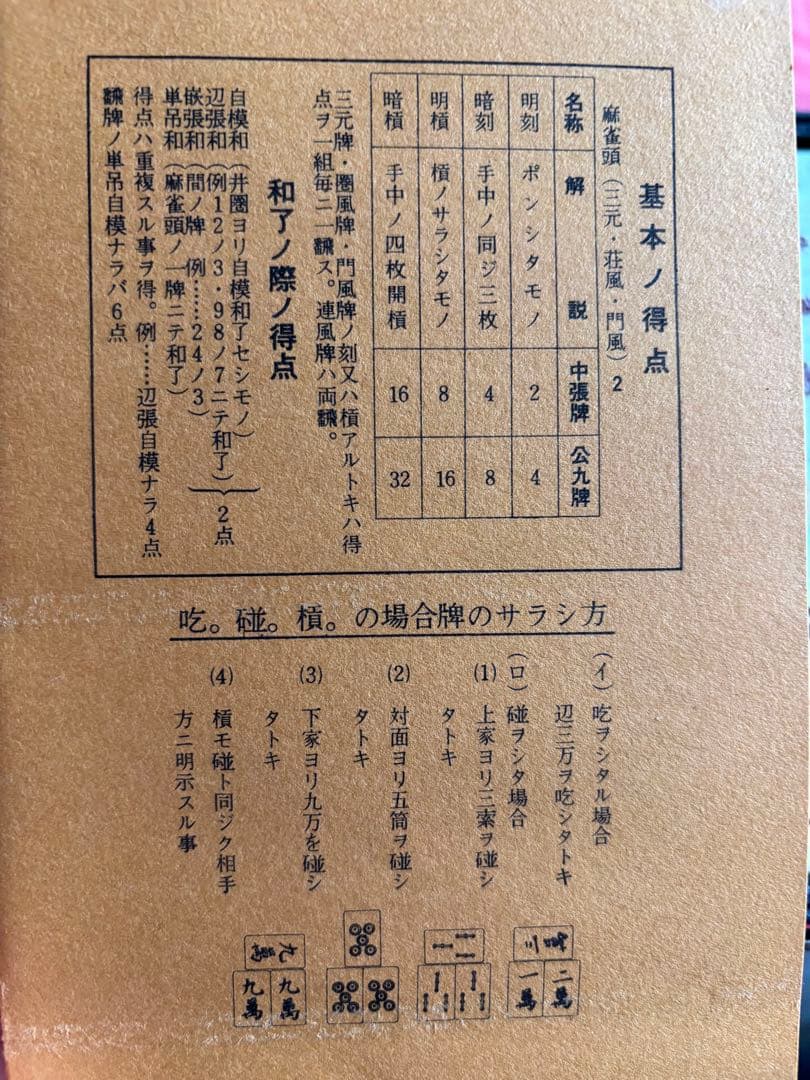 基本ノ得点
麻雀頭(三元・荘風・門風)2
名称 解説 中張牌 公九牌
明刻 ポンシタモノ 2 4
暗刻 手中ノ同ジ三枚 4 8
明槓 槓ノサラシタモノ 8 16
暗槓 手中ノ四枚開槓 16 32
三元牌・圏風牌・門風牌ノ刻又ハ槓アルトキハ得
点ヲ一組毎ニ一飜ス。連風牌ハ両飜。
和了ノ際ノ得点
自模和(井圏ヨリ自模和了セシモノ)
辺張和(例12ノ3・98ノ7ニテ和了)
嵌張和(間ノ牌 例……24ノ3)
単吊和(麻雀頭ノ一牌ニテ和了)
2点
得点ハ重複スル事ヲ得。例……辺張自模ナラ4点
飜牌ノ単吊自模ナラバ6点
吃。碰。槓。の場合牌のサラシ方
(イ)吃ヲシタル場合
辺三万ヲ吃シタトキ
(ロ)碰ヲシタ場合
(1)上家ヨリ三索ヲ碰シ
タトキ
(2)対面ヨリ五筒ヲ碰シ
タトキ
(3)下家ヨリ九万を碰シ
タトキ
(4)槓モ碰ト同ジク相手
方ニ明示スル事
三萬
二萬
一萬
九萬
九萬
九萬